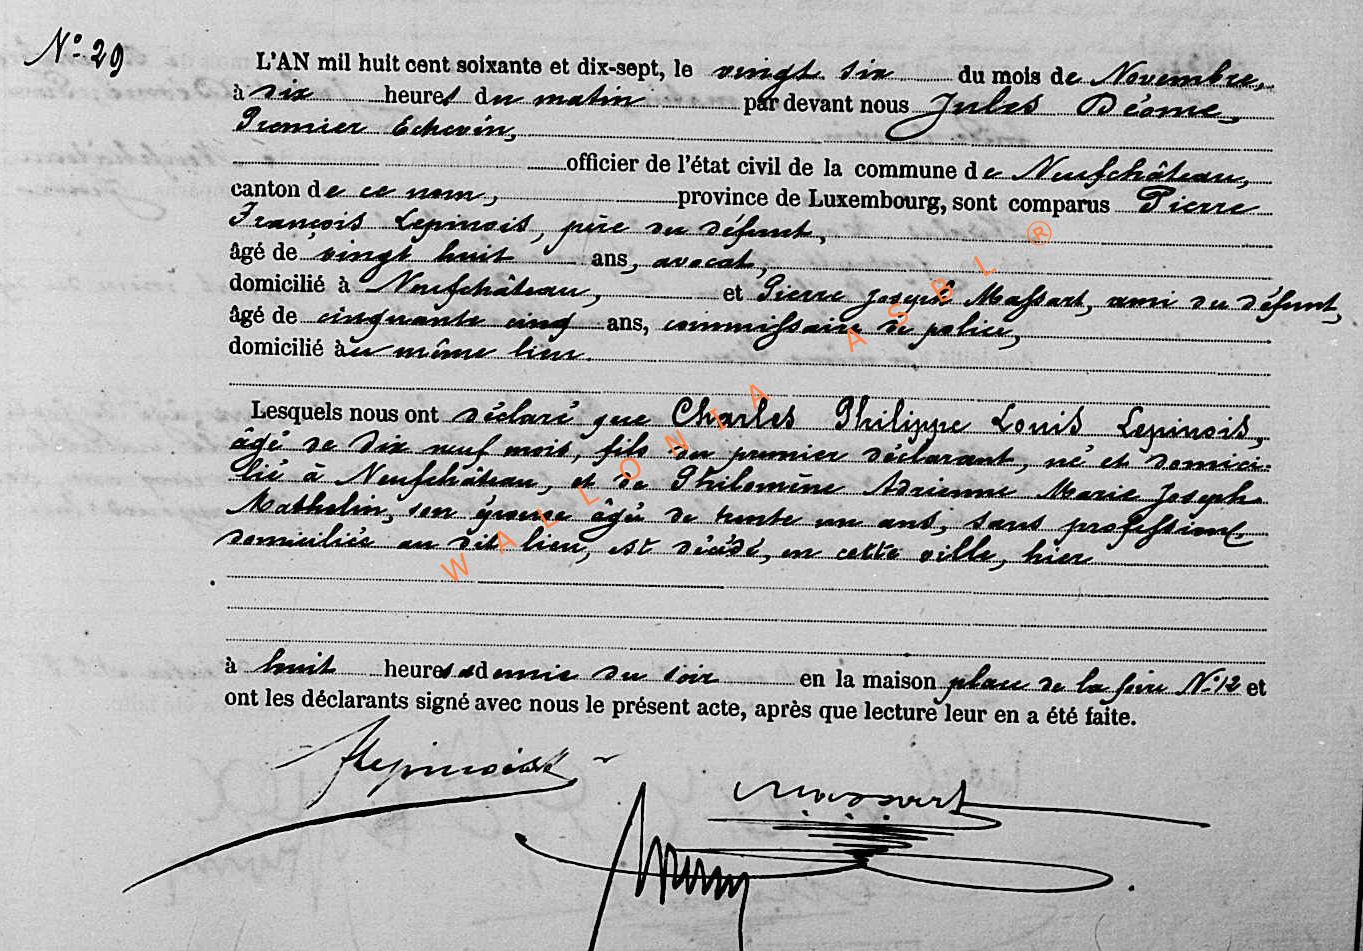 N° 29
L'AN mil huit cent soixante et dix-sept, le vingt six du mois de Novembre,
à dix heures du matin par devant nous Jules Déome,
Premier Echevin,
officier de l'état civil de la commune de Neufchâteau,
canton de ce nom, province de Luxembourg, sont comparus Pierre
François Lepinois, père du défunt,
âgé de vingt huit ans, avocat,
domicilié à Neufchâteau, et Pierre Joseph Massart, ami du défunt,
âgé de cinquante cinq ans, commissaire de police,
domicilié au même lieu.
Lesquels nous ont déclaré que Charles Philippe Louis Lepinois,
âgé de dix neuf mois, fils du premier déclarant, né et domici-
lié à Neufchâteau, et de Philomène Adrienne Marie Joseph
Mathelin, son épouse âgée de trente un ans, sans profession,
domiciliée au dit lieu, est décédé, en cette ville, hier
à huit heures et demie du soir en la maison place de la foire N° 12 et
ont les déclarants signé avec nous le présent acte, après que lecture leur en a été faite.
Lepinois
Massart
WALLONIA ASBL ®